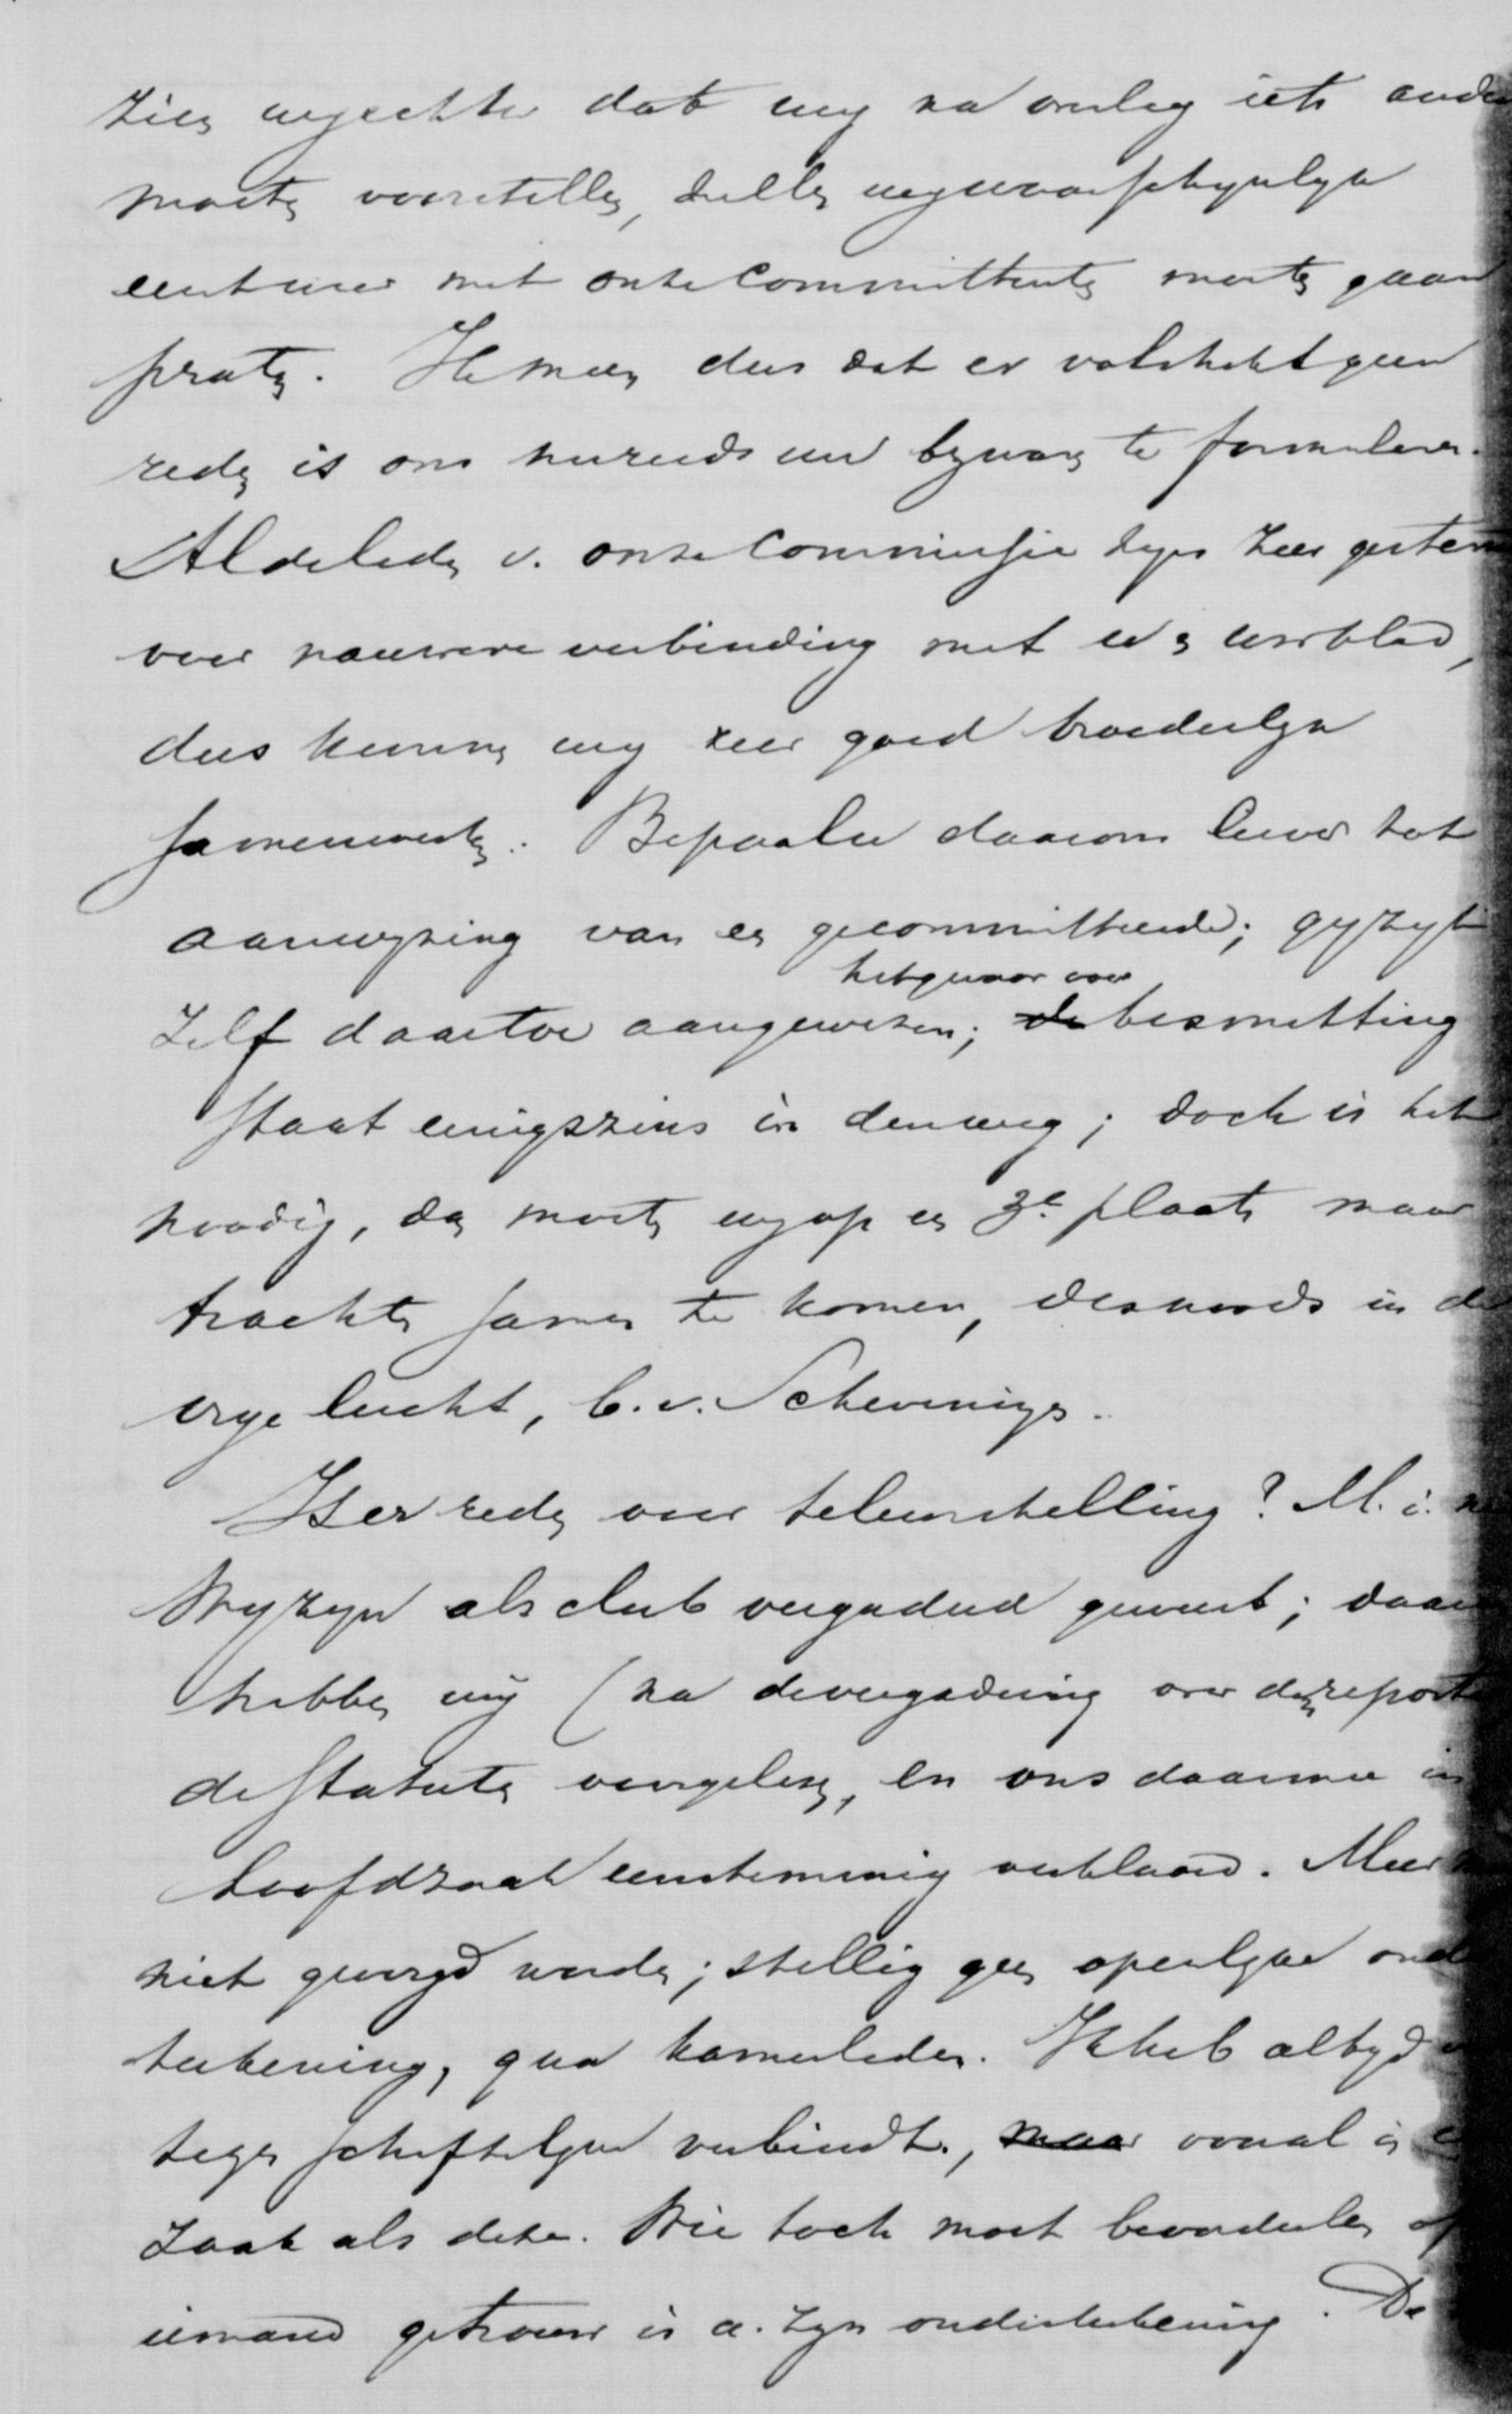 zien wy echter dat wy na overleg iets ander
moeten voorstellen, zullen wy waarschynlyk
eerst weer met onze Committenten moeten gaan
praten. Ik meen dus dat er volstrekt geen
reden is om nu reeds een bezwaar te formuleeren.
Al de leden v. onze Commissie zyn zeer gestemd
voor nauwere verbinding met uw weekblad,
dus kunnen wy zeer goed broederlyk
samenwerken. Bepaal u daarom liever tot
aanwyzing van een gecommitteerde; gy zyt
hetgevaar voor
zelf daartoe aangewezen; de besmetting
staat eenigszins in den weg; doch is het
noodig, dan moeten wy op een 3e plaats maar
trachten samen te komen, desnoods in de
vrye lucht, b.v. Scheveningen.
Is er reden voor teleurstelling? M.i. n
Wy zyn als club vergaderd geweest; daar
hebben wy (na de vergadering over den report
de statuten voorgelezen, en ons daarmee in
hoofdzaak eenstemmig verklaard. Meer
niet gevergd worden; stellig geen openlyke ond
teekening, qua kamerleden. Ik heb altyd
tegen schriftelyke verbindt., maar vooral in
zaak als deze. Wie toch moet beoordeelen of
iemand getrouw is a. zyn onderteekening. De